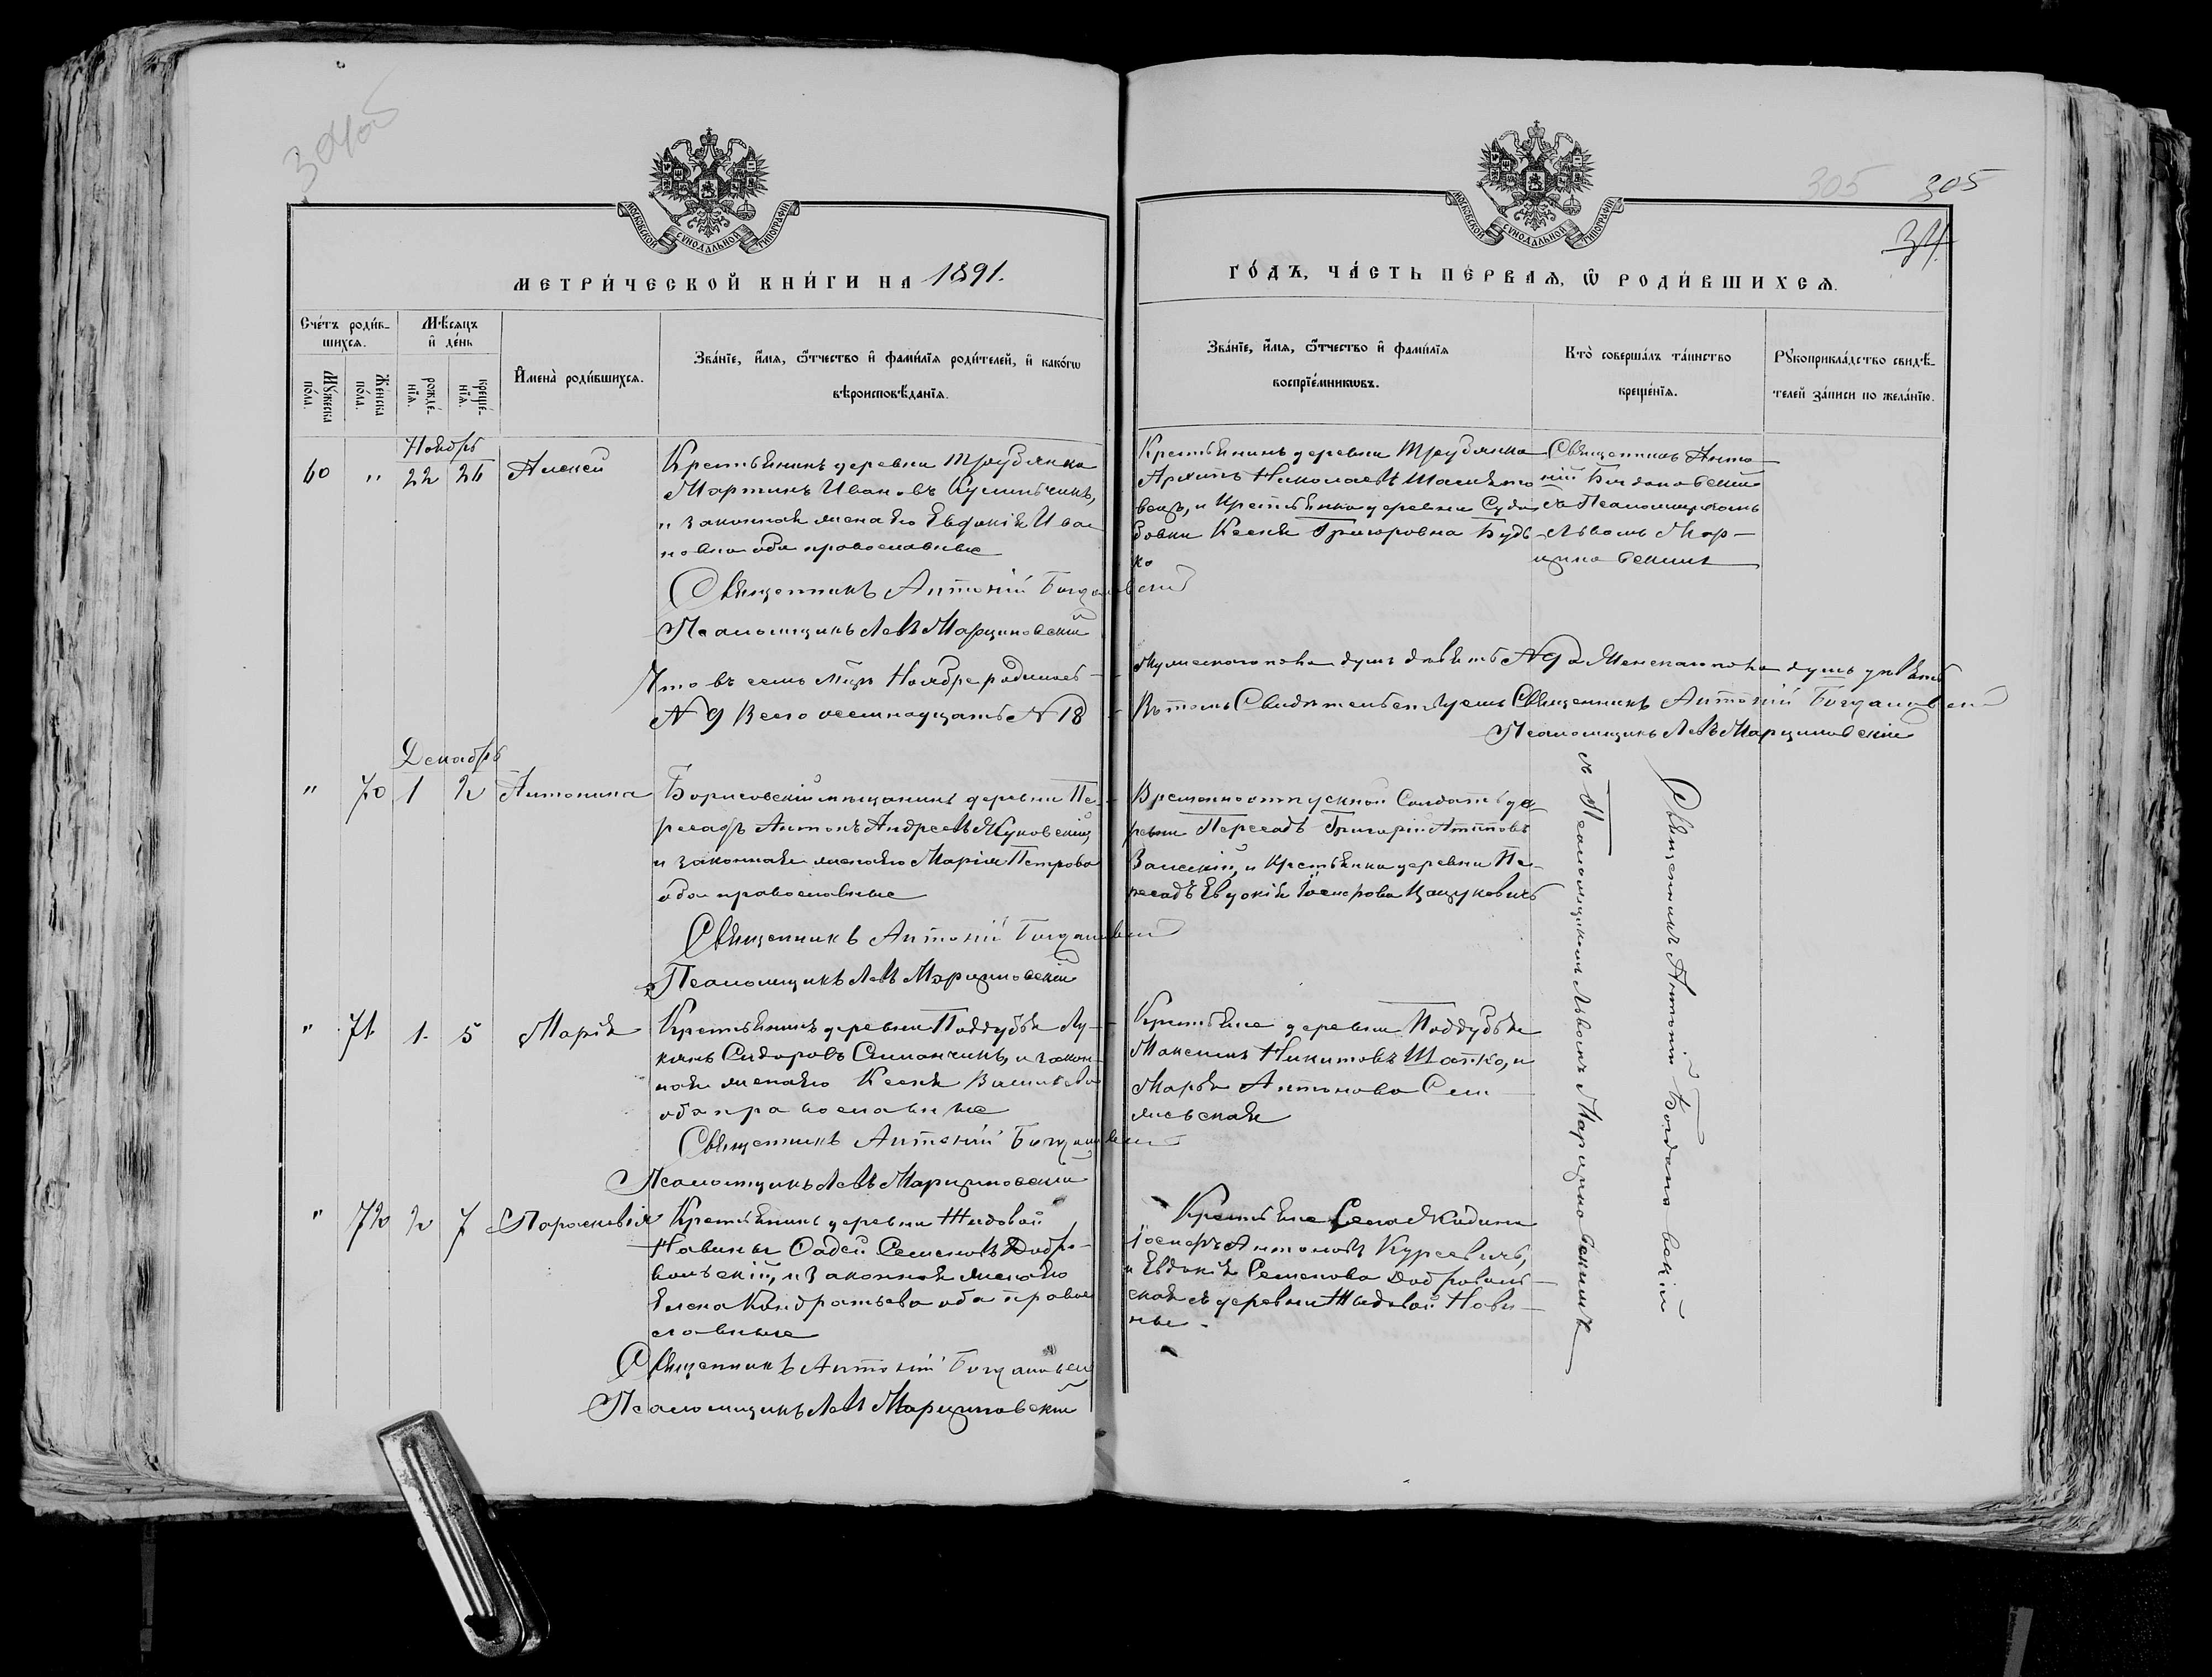 304об
305 305
34.
МОСКОВСКОЙ СѴНОДАЛЬНОЙ ТИПОГРАФІИ
МОСКОВСКОЙ СѴНОДАЛЬНОЙ ТИПОГРАФІИ
МЕТРИ́ЧЕСКОЙ КНИ́ГИ НА 1891.
ГО́ДЪ, ЧА́СТЬ ПЕ́РВАѦ, Ѿ РОДИ́ВШИХСѦ.
Сче́тъ роди́в-
шихсѧ.
Мѣ́сѧцъ
и҆ де́нь
Мꙋ́жеска
по́ла.
Же́нска
по́ла.
рожде́-
нїѧ.
креще́-
нїѧ.
И҆мена̀ роди́вшихсѧ.
Зва́нїе, и҆́мѧ, ѻ҆́тчество и҆ фами́лїѧ роди́телей, и҆ како́гѡ
вѣроисповѣ́данїѧ.
Зва́нїе, и҆́мѧ, ѻ҆́тчество и҆ фами́лїѧ
воспрїе́мникѡвъ.
Кто̀ соверша́лъ та́инство
креще́нїѧ.
Рꙋкоприкла́дство свидѣ́-
телей за́писи по жела́нїю.
Ноябрь
60 " 22 26 Алексей
Крестьянинъ деревни Трубянка
Мартинъ Ивановъ
и законная жена его Евдокія Ива
новна оба православные
Священникъ Антоній Богдановскій
Псаломщикъ Левъ Марциновскій
Крестьянинъ деревни Трубянка
Архипъ Николаевъ
и Крестьянка деревни
Ксенія Григоровна Будь
ко
Священникъ Анто
ній Богдановскій
съ Псаломщикомъ
Львомъ Мар-
циновскимъ
Что въ семъ Мцѣ Ноябре родилось Мужескаго пола душъ девять № 9 а Женскаго пола душъ девять
№ 9 Всего осемнадцать № 18 Въ томъ Свидетельствуемъ Священникъ Антоній Богдановскій
Псаломщикъ Левъ Марциновскій
Декабрь
" 70 1 2 Антонина
Борисовскій мещанинъ деревни Пе-
ресадъ Антонъ Андреевъ Жуковскій,
и законная жена его Марія Петрова
оба православные
Священникъ Антоній Богдановскій
Псаломщикъ Левъ Марциновскій
Временноотпускной Солдатъ де
ревни Пересадъ Григорій Антоновъ
и Крестьянка деревни Пе-
ресадъ Евдокія Іосифова Цацуковичъ
Священникъ Антоній Богдановскій
съ Псаломщикомъ Львомъ Марциновскимъ
" 71 1. 5 Марія
Крестьянинъ деревни Поддубья Лу-
кянъ Сидоровъ Симанчикъ, и закон-
ная жена его Ксенія Васильева
оба православные
Священникъ Антоній Богдановскій
Псаломщикъ Левъ Марциновскій
Крестьяне деревни Поддубья
Максимъ Никитовъ Шапко, и
Марья Антонова
" 72 2 7 Параскевія
Крестьянинъ деревни Жидовой
Новины Фадей Семеновъ Добро-
вольскій, и законная жена его
Елена Кондратьева оба право
славные
Священникъ Антоній Богдановскій
Псаломщикъ Левъ Марциновскій
Крестьяне Села Жидина
Іосифъ Антоновъ Курсевичъ,
и Евдокія Семенова Добровль-
ская съ деревни Жидовой Нови-
ны.